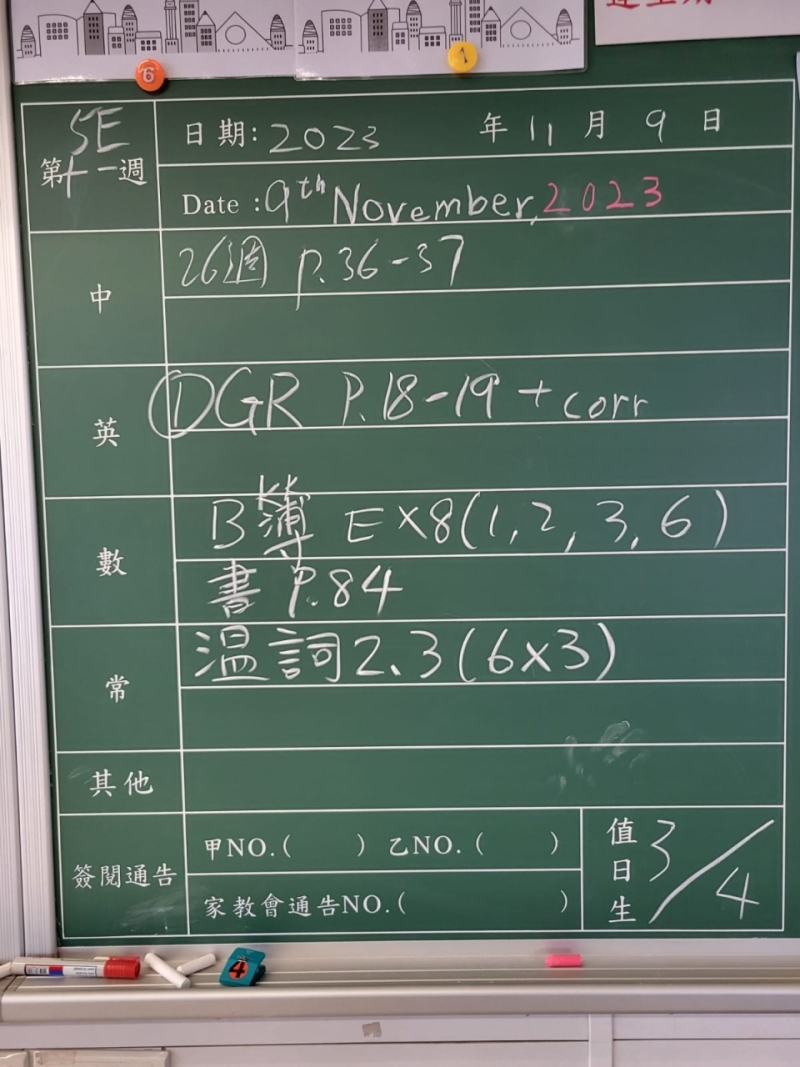 6
1
5E
第十一週
日期: 2023 年 11 月 9 日
Date : 9th November, 2023
中
26週 P.36-37
英
①DGR P.18-19 + corr
數
B簿 Ex8(1, 2, 3, 6)
書 P.84
常
溫詞2、3(6x3)
其他
簽閱通告
甲NO.( ) 乙NO.( )
家教會通告NO.( )
值日生 3/4
4